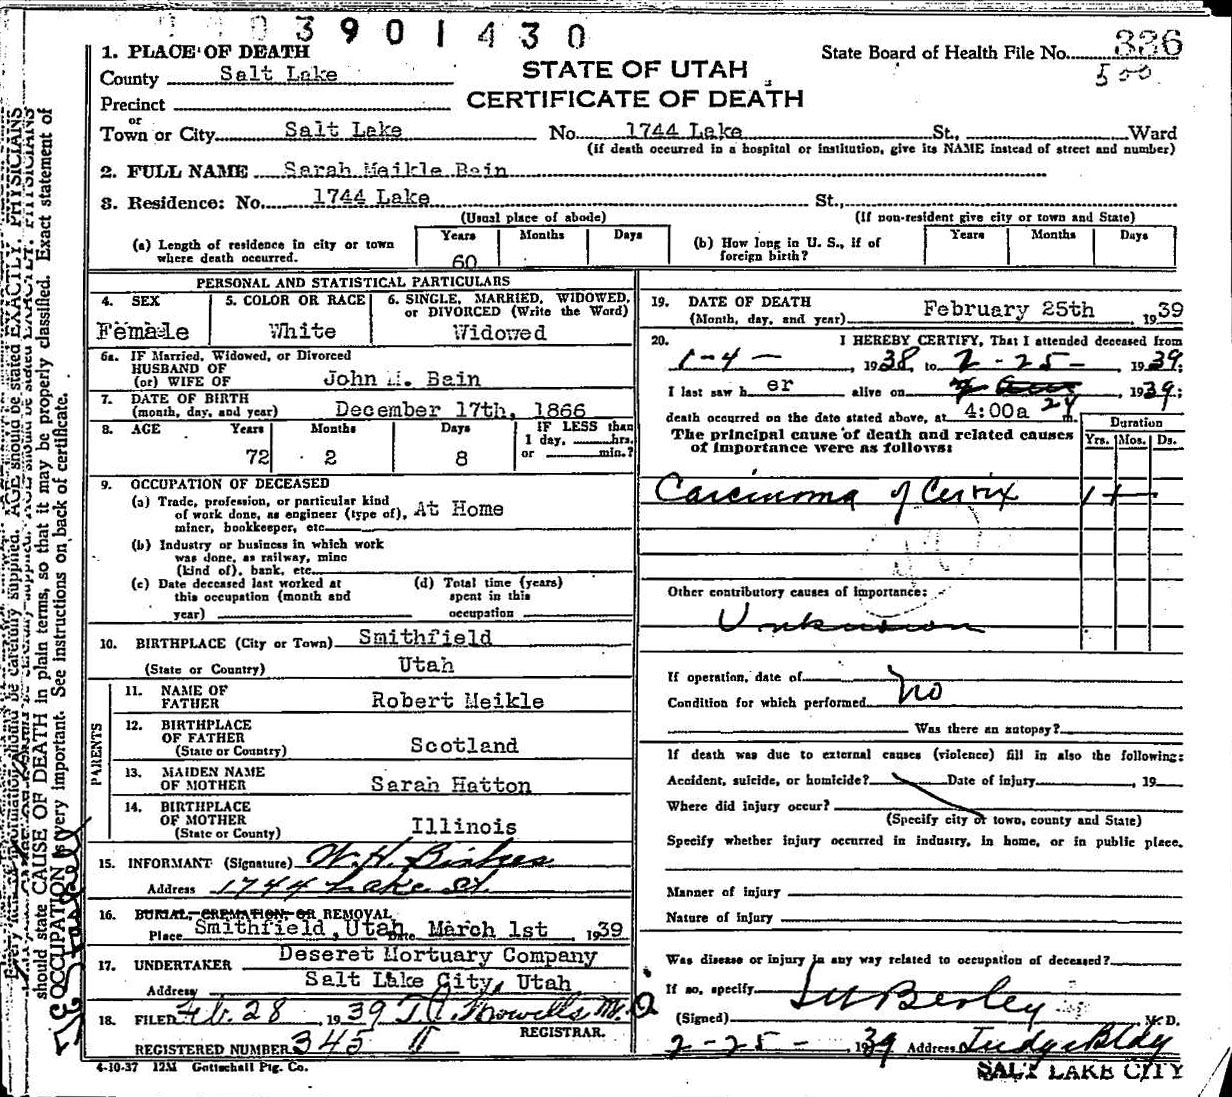 3901430
1. PLACE OF DEATH
State Board of Health File No. 336
County Salt Lake
STATE OF UTAH
500
Precinct
CERTIFICATE OF DEATH
or
Town or City Salt Lake No. 1744 Lake St., Ward
(If death occurred in a hospital or institution, give its NAME instead of street and number)
2. FULL NAME Sarah Meikle Bain
3. Residence: No. 1744 Lake St.,
(Usual place of abode) (If non-resident give city or town and State)
(a) Length of residence in city or town where death occurred. Years 60 Months Days
(b) How long in U. S., if of foreign birth? Years Months Days
PERSONAL AND STATISTICAL PARTICULARS
4. SEX Female
5. COLOR OR RACE White
6. SINGLE, MARRIED, WIDOWED, or DIVORCED (Write the Word) Widowed
6a. IF Married, Widowed, or Divorced
HUSBAND OF
(or) WIFE OF John H. Bain
7. DATE OF BIRTH
(month, day, and year) December 17th, 1866
8. AGE Years 72 Months 2 Days 8
IF LESS than 1 day, hrs. or min.?
9. OCCUPATION OF DECEASED
(a) Trade, profession, or particular kind
of work done, as engineer (type of), At Home
miner, bookkeeper, etc.
(b) Industry or business in which work
was done, as railway, mine
(kind of), bank, etc.
(c) Date deceased last worked at
this occupation (month and
year)
(d) Total time (years)
spent in this
occupation
10. BIRTHPLACE (City or Town) Smithfield
(State or Country) Utah
PARENTS
11. NAME OF FATHER Robert Meikle
12. BIRTHPLACE OF FATHER
(State or Country) Scotland
13. MAIDEN NAME OF MOTHER Sarah Hatton
14. BIRTHPLACE OF MOTHER
(State or County) Illinois
15. INFORMANT (Signature) W. H.
Address 1744 Lake St.
16. BURIAL, CREMATION, OR REMOVAL
Place Smithfield, Utah Date March 1st, 1939
17. UNDERTAKER Deseret Mortuary Company
Address Salt Lake City, Utah
18. FILED Feb. 28, 1939
REGISTRAR.
REGISTERED NUMBER 345
4-10-37 12M Gottschall Ptg. Co.
19. DATE OF DEATH
(Month, day, and year) February 25th, 1939
20. I HEREBY CERTIFY, That I attended deceased from
1-4-, 1938, to 2-25-, 1939;
I last saw her alive on 24, 1939;
death occurred on the date stated above, at 4:00a m.
The principal cause of death and related causes
of importance were as follows:
Duration
Yrs. Mos. Ds.
Carcinoma of Cervix 1+
Other contributory causes of importance:
Unknown
If operation, date of
no
Condition for which performed
Was there an autopsy?
If death was due to external causes (violence) fill in also the following:
Accident, suicide, or homicide? Date of injury, 19
Where did injury occur?
(Specify city or town, county and State)
Specify whether injury occurred in industry, in home, or in public place.
Manner of injury
Nature of injury
Was disease or injury in any way related to occupation of deceased?
If so, specify
(Signed) M. D.
2-25-, 1939 Address Judge Bldg
SALT LAKE CITY
should state CAUSE OF DEATH in plain terms, so that it may be properly classified. Exact statement of
OCCUPATION is very important. See instructions on back of certificate.